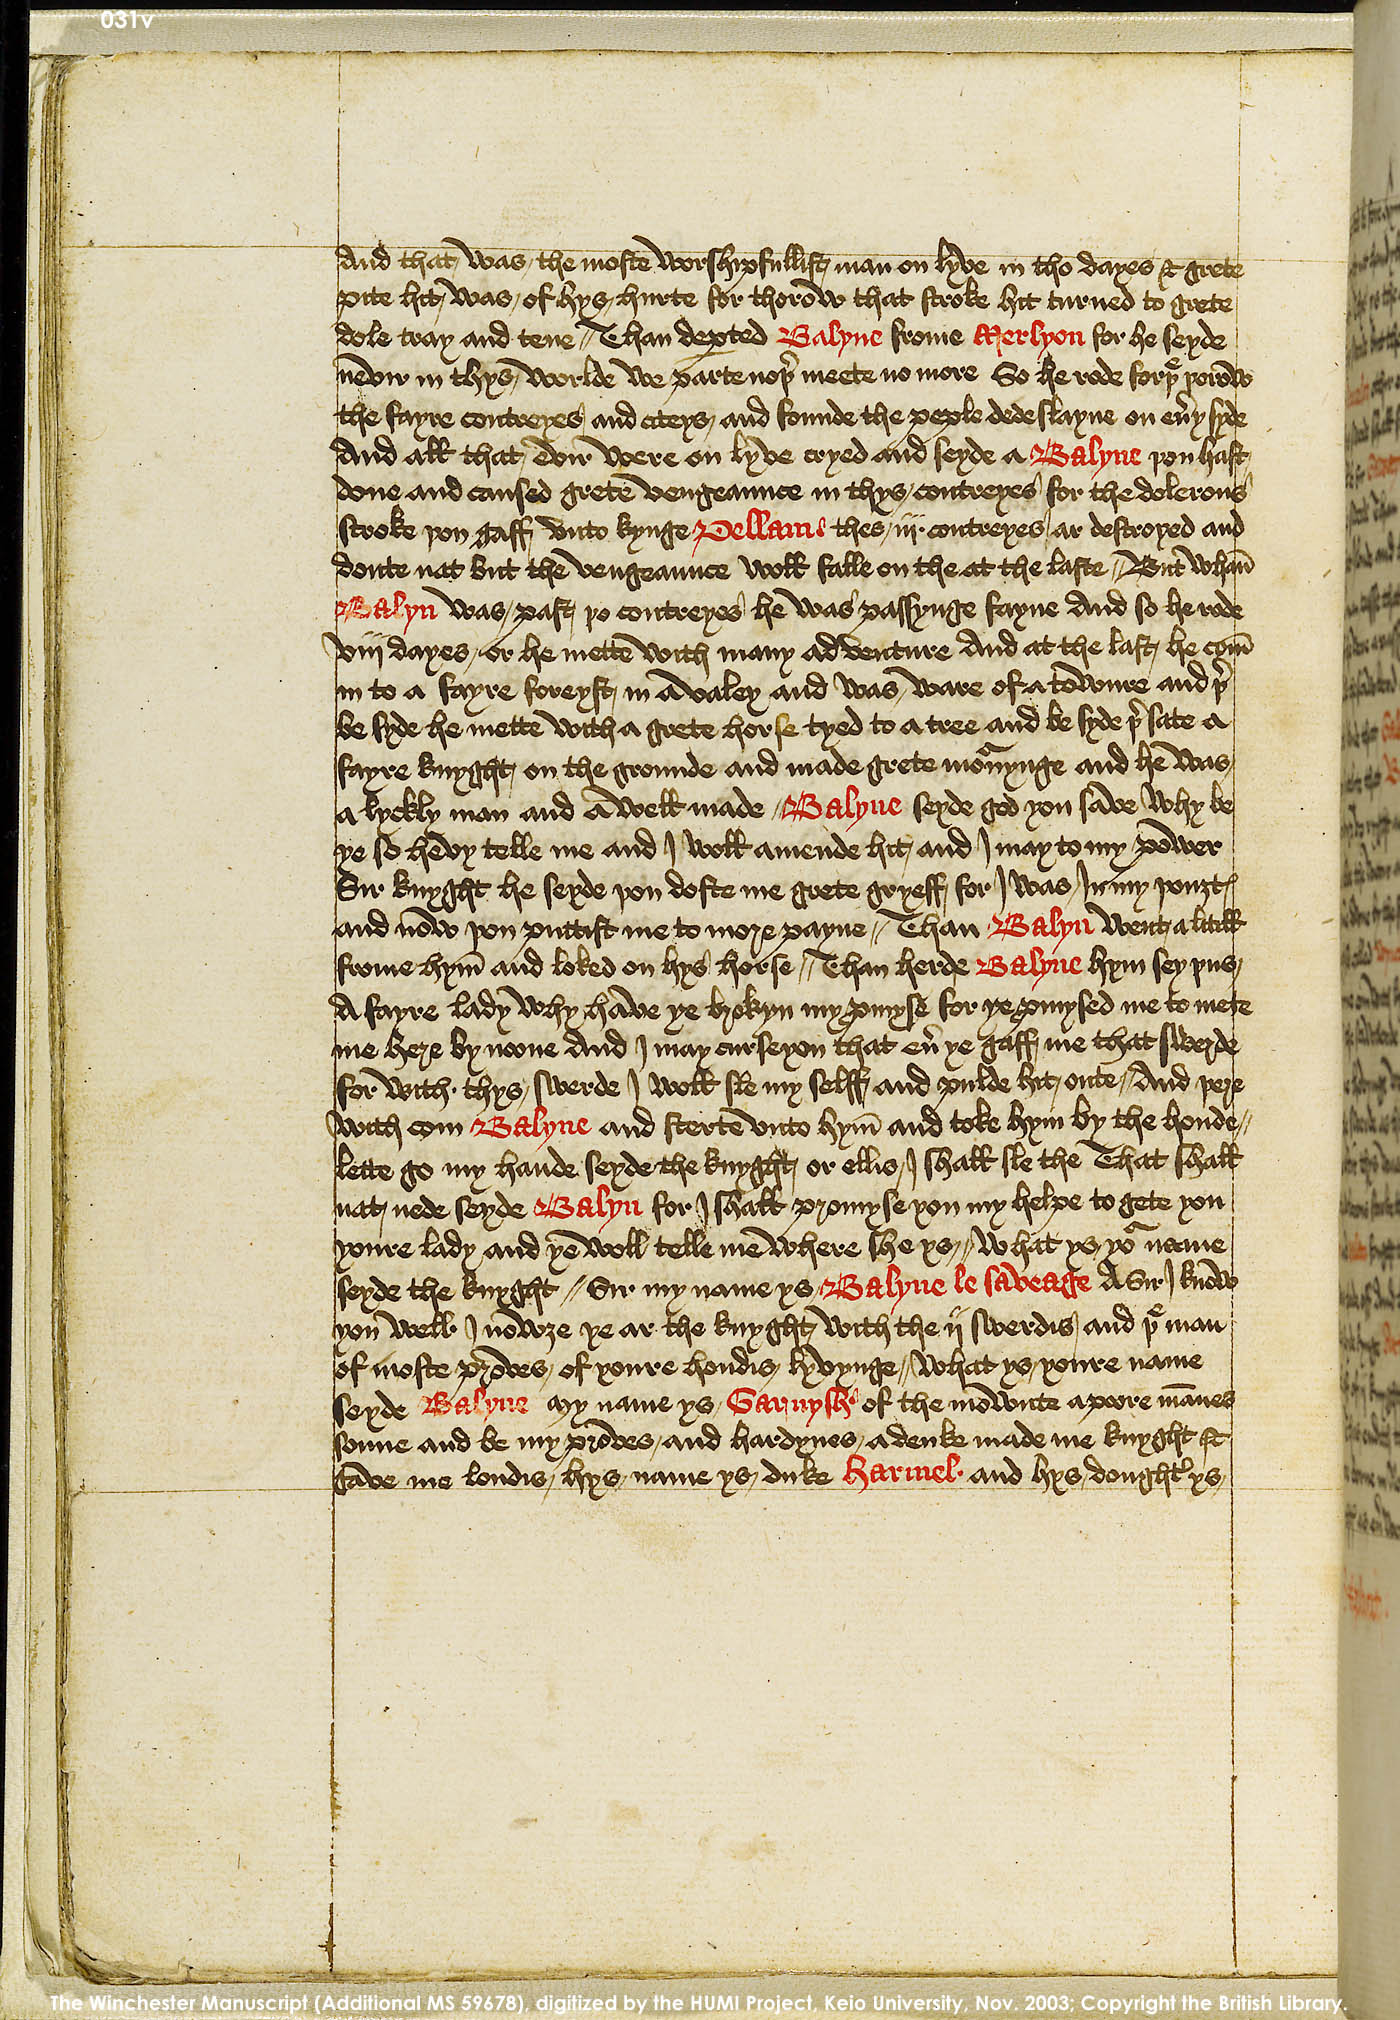 031v
And that was the moste worshipfullist man on lyve in tho dayes & grete
pite hit was of hys hurte for thorow that stroke hit turned to grete
dole tray and tene // Than depted Balyne frome Merlyon for he seyde
nevir in thys worlde we parte noþr meete no more So he rode forþe þorow
the fayre contreyes and citeys and founde the peple dede slayne on eu̾y syde
And all that evir were on lyve cryed and seyde a Balyne þou hast
done and caused grete vengeaunce in thys contreyes for the dolerous
stroke þou gaff vnto kynge Pellam thes iij contreyes ar destroyed and
doute nat but the vengeaunce woll falle on the at the laste // But whan̄
Balyn was past þo contreyes he was passynge fayne And so he rode
viij dayes or he mette with many adventure And at the last he com̄
in to a fayre foreyst in a valey and was ware of a towure and þr
be syde he mette with a grete horse tyed to a tree and be syde þr sate a
fayre knyght on the grounde and made grete moʳnynge and he was
a lyckly man and a well made / Balyne seyde god you save why be
ye so hevy telle me and I woll amende hit and I may to my power
Sir knyght he seyde þou doste me grete gryeff for I was in my þouȝt
and now þou puttist me to more payne // Than Balyn went a litill
frome hym̄ and loked on hys horse // Than herde Balyne hym sey þus
A fayre lady why have ye brokyn my pmyse for ye pmysed me to mete
me here by noone And I may curse you that eu̾ ye gaff me that swerde
for with thys swerde I woll sle my selff and pulde hit oute // And þere
with com Balyne and sterte vnto hym̄ and toke hym by the honde //
lette go my hande seyde the knyght or ellis I shall sle the That shall
nat nede seyde Balyn for I shall promyse you my helpe to gete you
youre lady and ye woll telle me where she ys // What ys yoʳ name
seyde the knyght // Sir my name ys Balyne le saveage A Sir I know
you well I nowze ye ar the knyght with the ij swerdis and þe man
of moste proves of youre hondis lyvynge // What ys youre name
seyde Balyne My name ys Garnysh of the mownte a poore mānes
sonne and be my proves and hardynes a deuke made me knyght &
gave me londis hys name ys duke Harmel and hys doughtʳ ys
The Winchester Manuscript (Additional MS 59678), digitized by the HUMI Project, Keio University, Nov. 2003; Copyright the British Library.